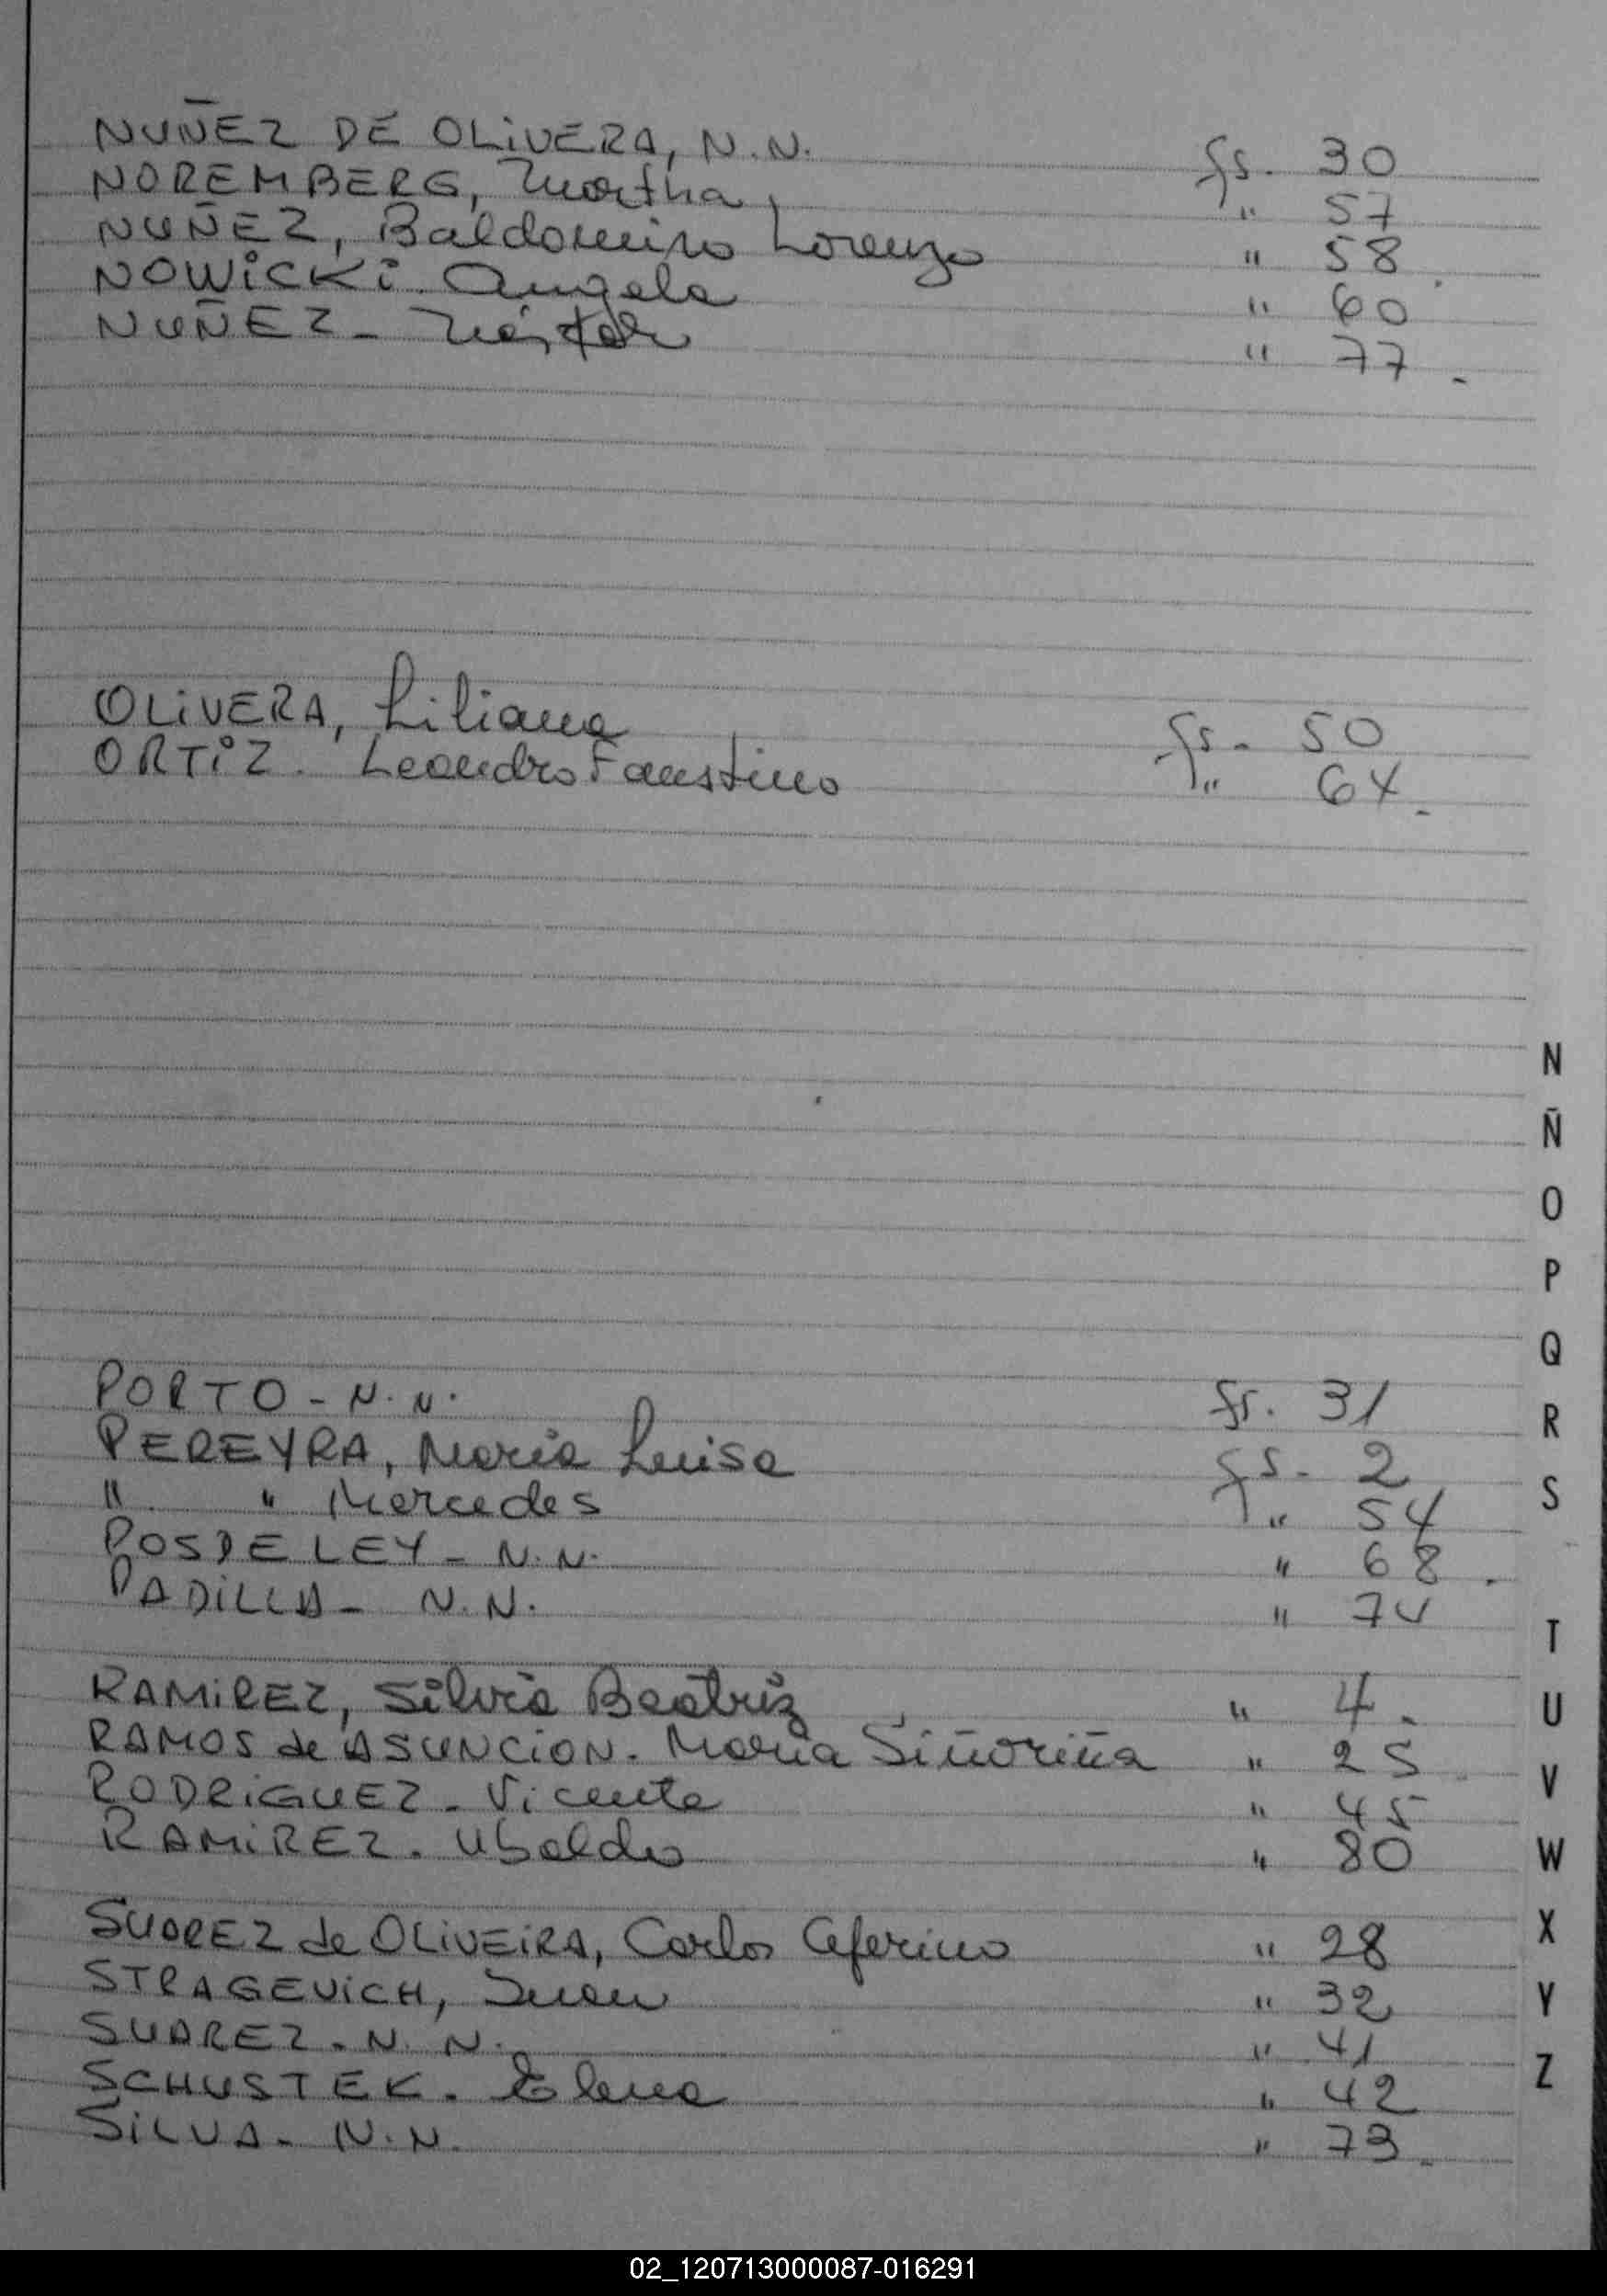 NUÑEZ DE OLIVERA, N.N. fs. 30
NOREMBERG, Martha " 57
NUÑEZ, Baldomiro Lorenzo " 58
NOWiCKi. Angela " 60
NUÑEZ - Néstor " 77.
OLiVERA, Liliana fs. 50
ORTiZ. Leandro Faustino " 64.
PORTO - N.N. fs. 31
PEREYRA, María Luisa fs. 2
" " Mercedes " 54
POSDELEY - N.N. " 68.
PADiLLA - N.N. " 74
RAMiREZ, Silvia Beatriz " 4.
RAMOS de ASUNCiON. María Siñoriña " 25
RODRiGUEZ - Vicente " 45
RAMiREZ. Ubaldo " 80
SUAREZ de OLiVEiRA, Carlos Ceferino " 28
STRAGEViCH, Juan " 32
SUAREZ - N.N. " 41
SCHUSTEK. Elena " 42
SiLVA - N.N. " 73.
N
Ñ
O
P
Q
R
S
T
U
V
W
X
Y
Z
02_120713000087-016291